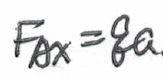 F_{Ax} = qa.